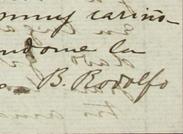 muy cariño-
ndome la
B. Rodolfo